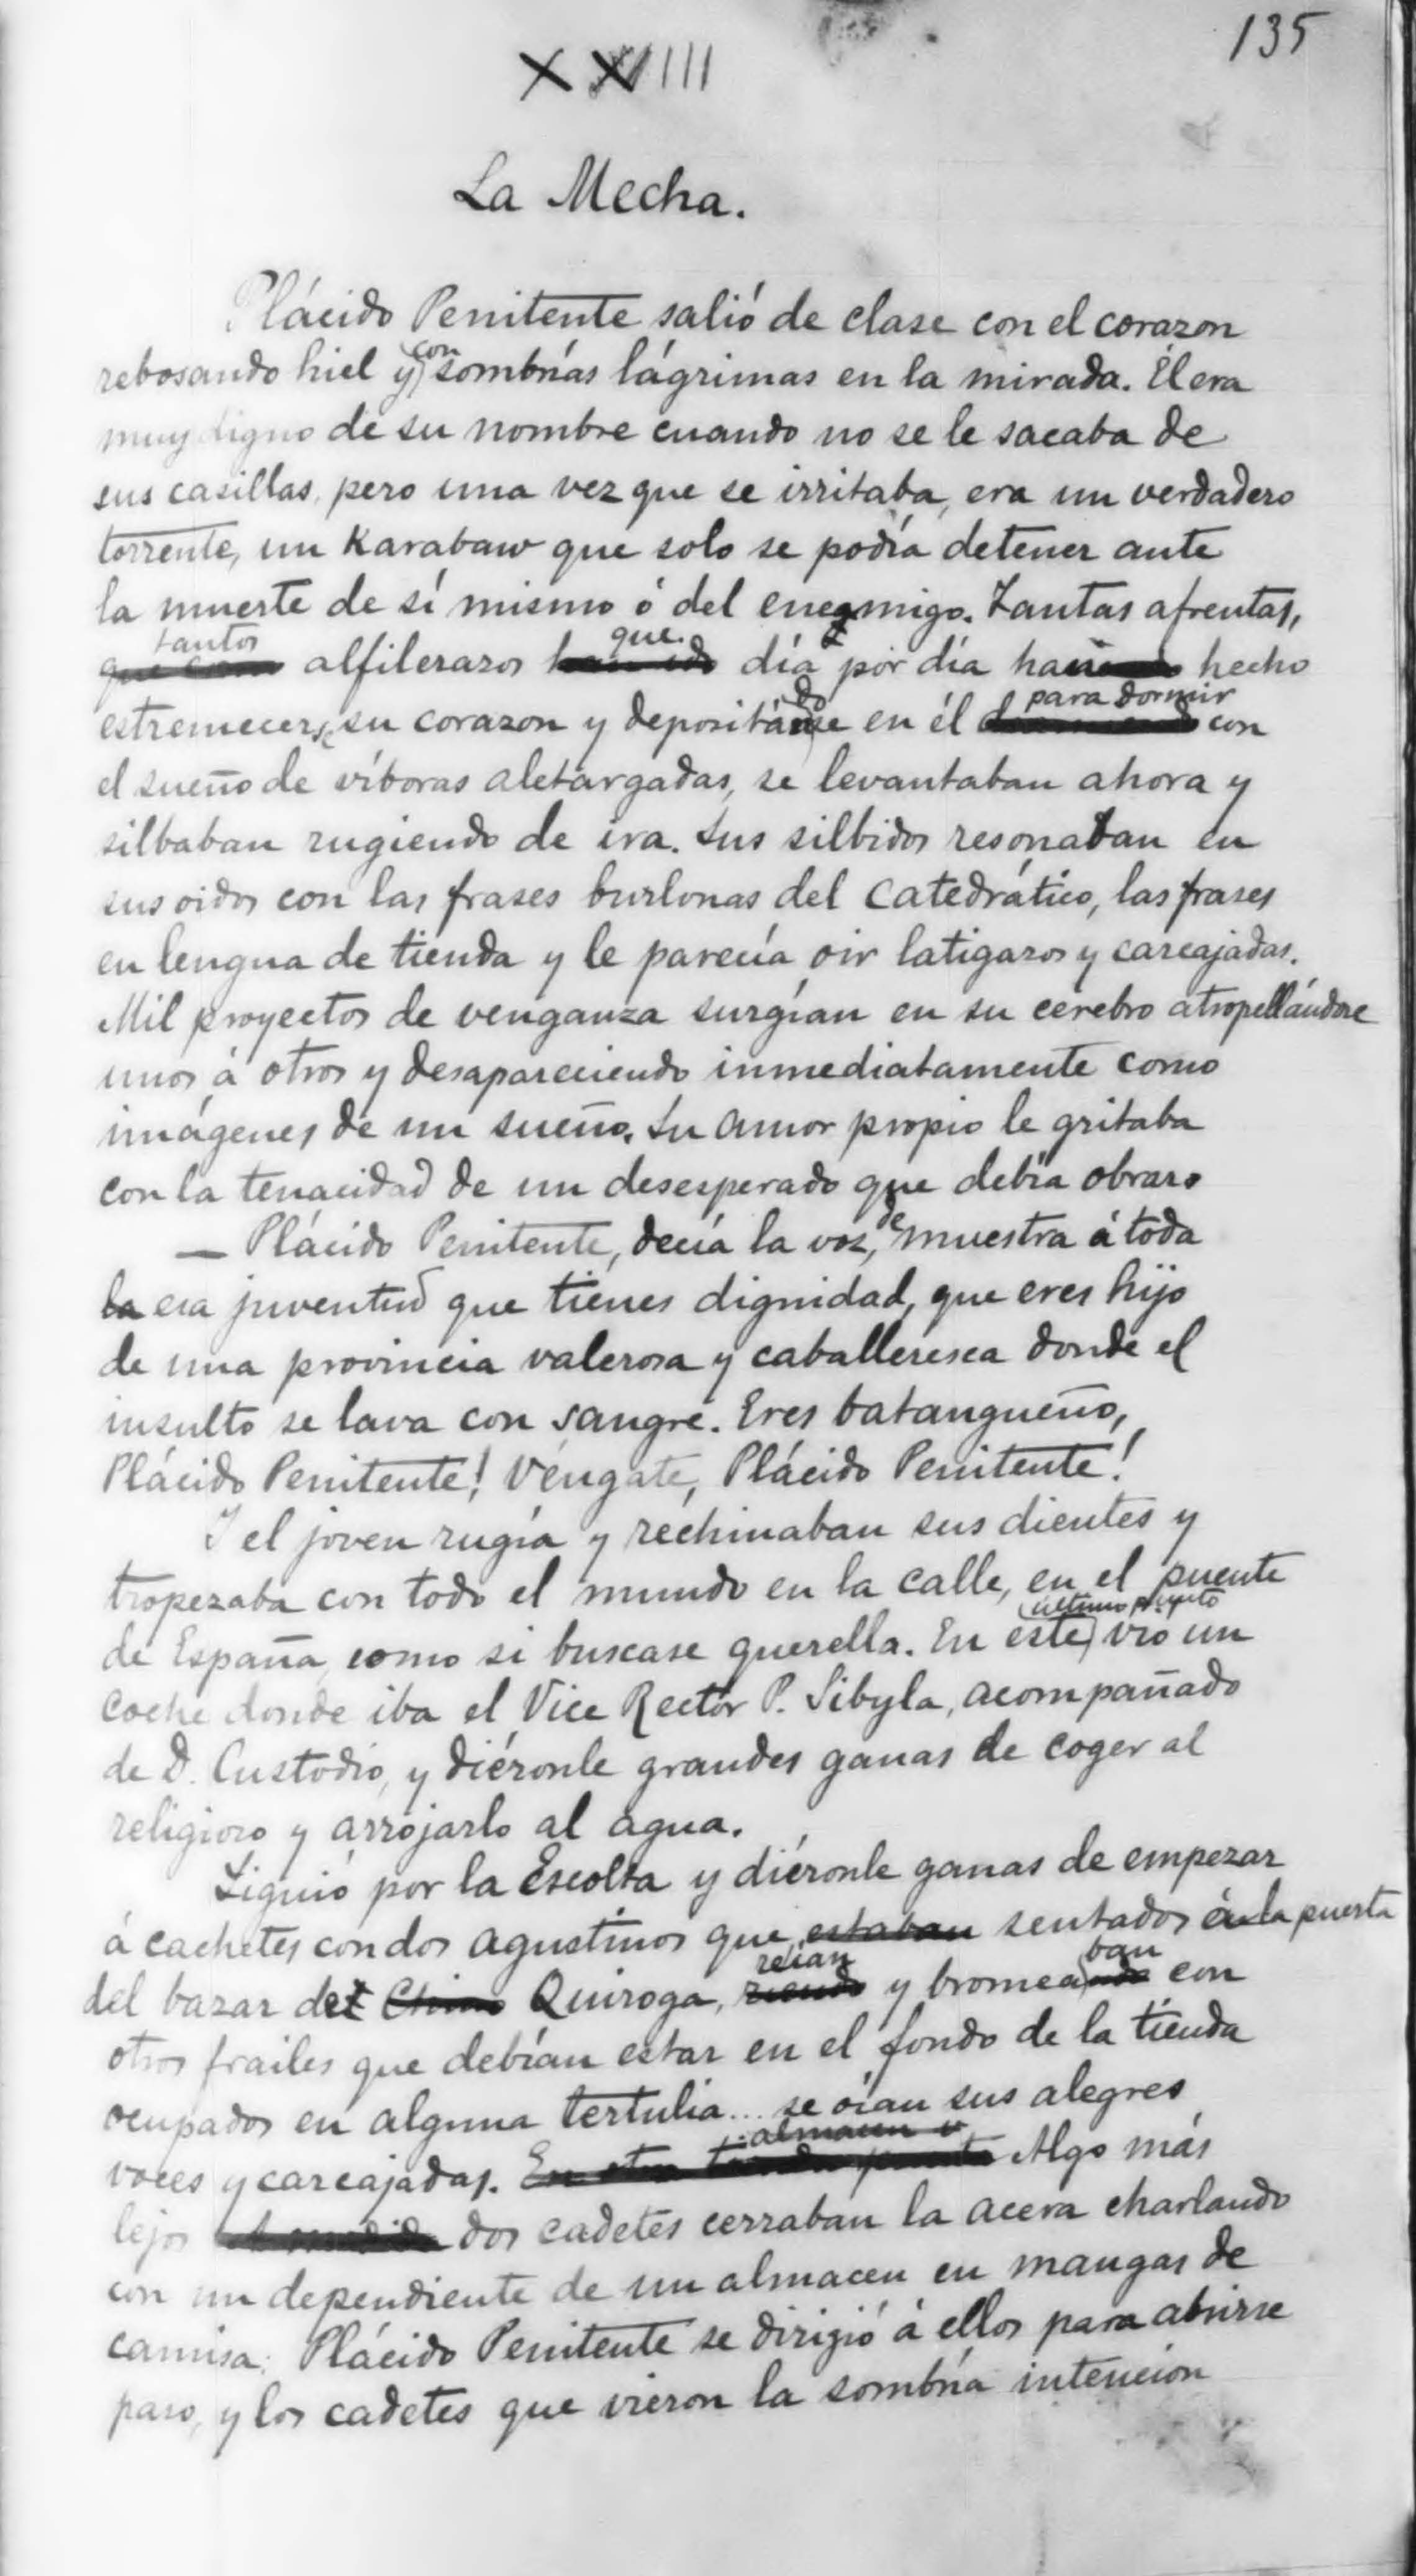 135
XXIIII
La Mecha.
Plácido Penitente salió de clase con el corazon
rebosando hiel y con sombrías lágrimas en la mirada. Él era
muy digno de su nombre cuando no se le sacaba de
sus casillas, pero una vez que se irritaba, era un verdadero
torrente, un Karabaw que solo se podía detener ante
la muerte de sí mismo ó del enemigo. Tantas afrentas,
tantos alfilerazos que día por día han hecho
estremecerse su corazon y depositádose en él para dormir con
el sueño de víboras aletargadas, se levantaban ahora y
silbaban rugiendo de ira. Sus silbidos resonaban en
sus oidos con las frases burlonas del Catedrático, las frases
en lengua de tienda y le parecía oir latigazos y carcajadas.
Mil proyectos de venganza surgían en su cerebro atropellándose
unos á otros y desapareciendo inmediatamente como
imágenes de un sueño. Su amor propio le gritaba
con la tenacidad de un desesperado que debía obrar.
— Plácido Penitente, decía la voz, demuestra á toda
la esa juventud que tienes dignidad, que eres hijo
de una provincia valerosa y caballeresca donde el
insulto se lava con sangre. Eres batangueño,
Plácido Penitente! Véngate, Plácido Penitente!
Y el joven rugía y rechinaban sus dientes y
tropezaba con todo el mundo en la calle, en el puente
de España, como si buscase querella. En este último punto vió un
coche donde iba el Vice Rector P. Sibyla, acompañado
de D. Custodio, y diéronle grandes ganas de coger al
religioso y arrojarlo al agua.
Siguió por la Escolta y diéronle ganas de empezar
á cachetes con dos agustinos que estaban sentados en la puerta
del bazar de Chino Quiroga, riendo reían y bromeaban con
otros frailes que debían estar en el fondo de la tienda
ocupados en alguna tertulia... se oían sus alegres
voces y carcajadas. En otra almacen Algo más
lejos dos cadetes cerraban la acera charlando
con un dependiente de un almacen en mangas de
camisa: Plácido Penitente se dirigió á ellos para abrirse
paso, y los cadetes que vieron la sombría intencion